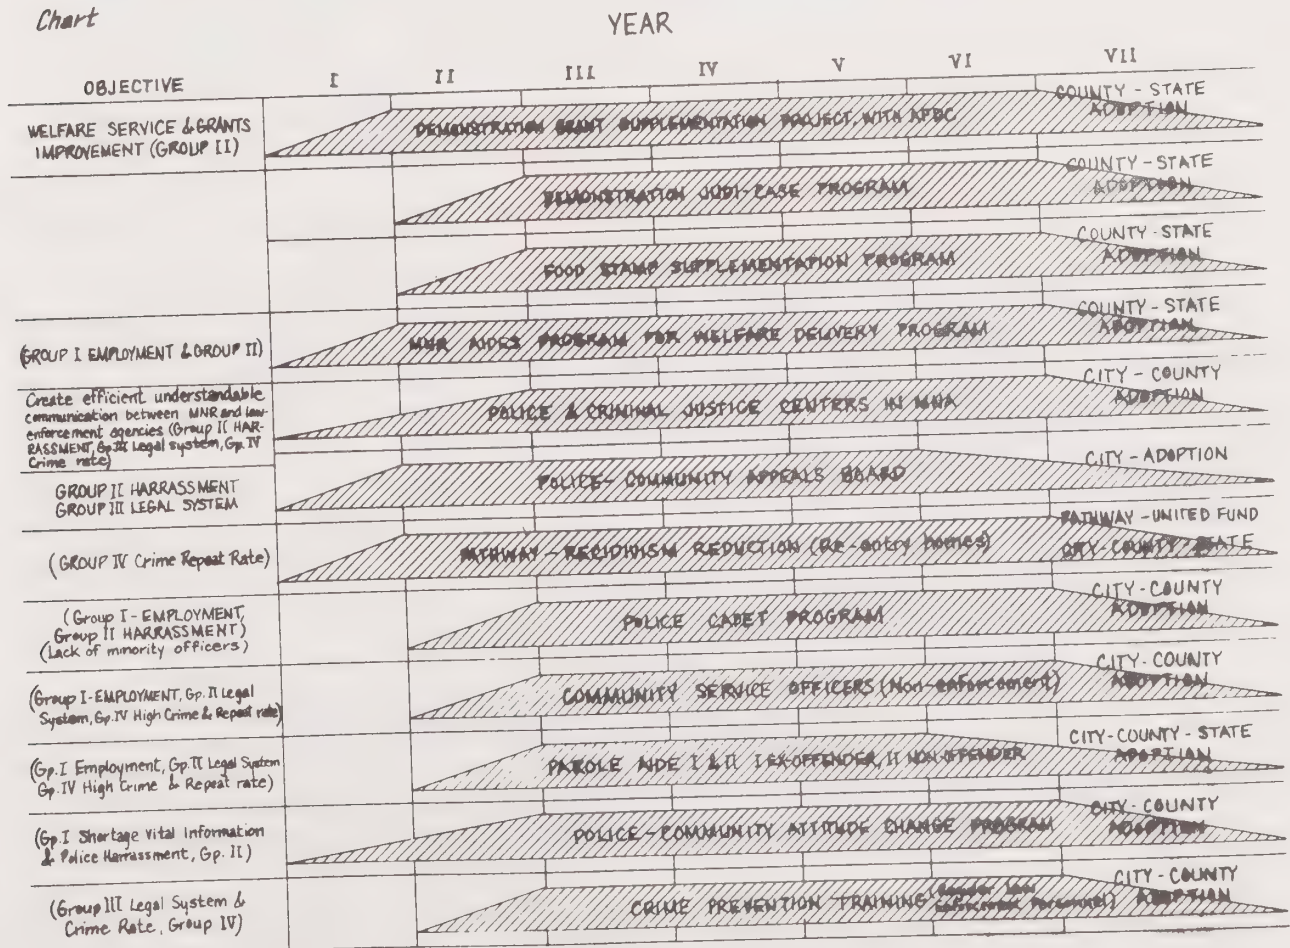 Chart
YEAR
OBJECTIVE I II III IV V VI VII
WELFARE SERVICE & GRANTS
IMPROVEMENT (GROUP II)
DEMONSTRATION GRANT SUPPLEMENTATION PROJECT, WITH AFDC
COUNTY - STATE
ADOPTION
DEMONSTRATION JUDI-CASE PROGRAM
COUNTY - STATE
ADOPTION
FOOD STAMP SUPPLEMENTATION PROGRAM
COUNTY - STATE
ADOPTION
(GROUP I EMPLOYMENT & GROUP II)
MNR AIDES PROGRAM FOR WELFARE DELIVERY PROGRAM
COUNTY - STATE
ADOPTION
Create efficient understandable
communication between MNR and law-
enforcement agencies (Group II HAR-
RASSMENT, Gp.III Legal system, Gp. IV
Crime rate)
POLICE & CRIMINAL JUSTICE CENTERS IN MNA
CITY - COUNTY
ADOPTION
GROUP II HARRASSMENT
GROUP III LEGAL SYSTEM
POLICE - COMMUNITY APPEALS BOARD
CITY - ADOPTION
(GROUP IV Crime Repeat Rate)
PATHWAY - RECIDIVISM REDUCTION (Re-entry homes)
PATHWAY - UNITED FUND
CITY - COUNTY - STATE
(Group I - EMPLOYMENT,
Group II HARRASSMENT)
(Lack of minority officers)
POLICE CADET PROGRAM
CITY - COUNTY
ADOPTION
(Group I - EMPLOYMENT, Gp. II Legal
System, Gp. IV High Crime & Repeat rate)
COMMUNITY SERVICE OFFICERS (Non-enforcement)
CITY - COUNTY
ADOPTION
(Gp. I Employment, Gp. II Legal System
Gp. IV High Crime & Repeat rate)
PAROLE AIDE I & II I EX-OFFENDER, II NON-OFFENDER
CITY - COUNTY - STATE
ADOPTION
(Gp. I Shortage Vital Information
& Police Harrassment, Gp. II)
POLICE - COMMUNITY ATTITUDE CHANGE PROGRAM
CITY - COUNTY
ADOPTION
(Group III Legal System &
Crime Rate, Group IV)
CRIME PREVENTION TRAINING
Enforcement Personnel)
CITY - COUNTY
ADOPTION